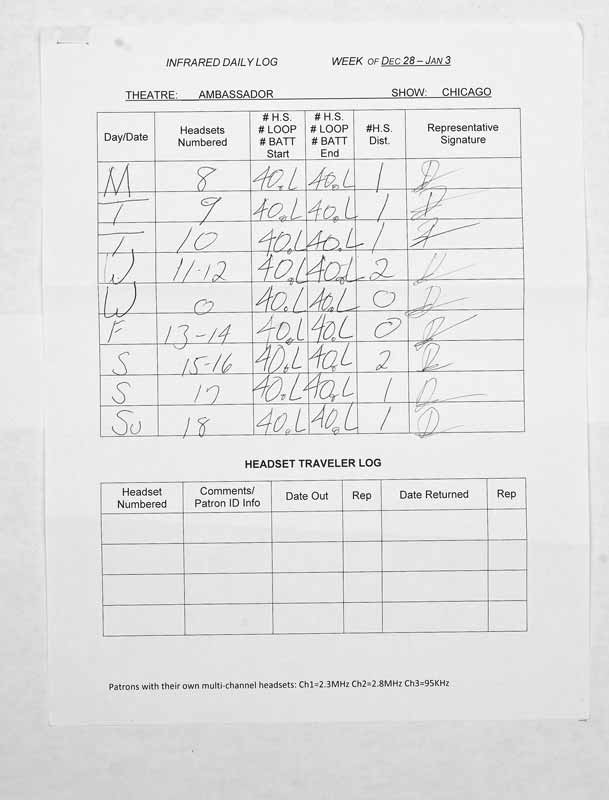 INFRARED DAILY LOG WEEK OF DEC 28 – JAN 3
THEATRE: AMBASSADOR SHOW: CHICAGO
Day/Date Headsets Numbered # H.S. # LOOP # BATT Start # H.S. # LOOP # BATT End #H.S. Dist. Representative Signature
M 8 40.L 40.L 1
T 9 40.L 40.L 1
T 10 40.L 40.L 1
W 11-12 40.L 40.L 2
W 0 40.L 40.L 0
F 13-14 40.L 40.L 0
S 15-16 40.L 40.L 2
S 17 40.L 40.L 1
SU 18 40.L 40.L 1
HEADSET TRAVELER LOG
Headset Numbered Comments/ Patron ID Info Date Out Rep Date Returned Rep
Patrons with their own multi-channel headsets: Ch1=2.3MHz Ch2=2.8MHz Ch3=95KHz